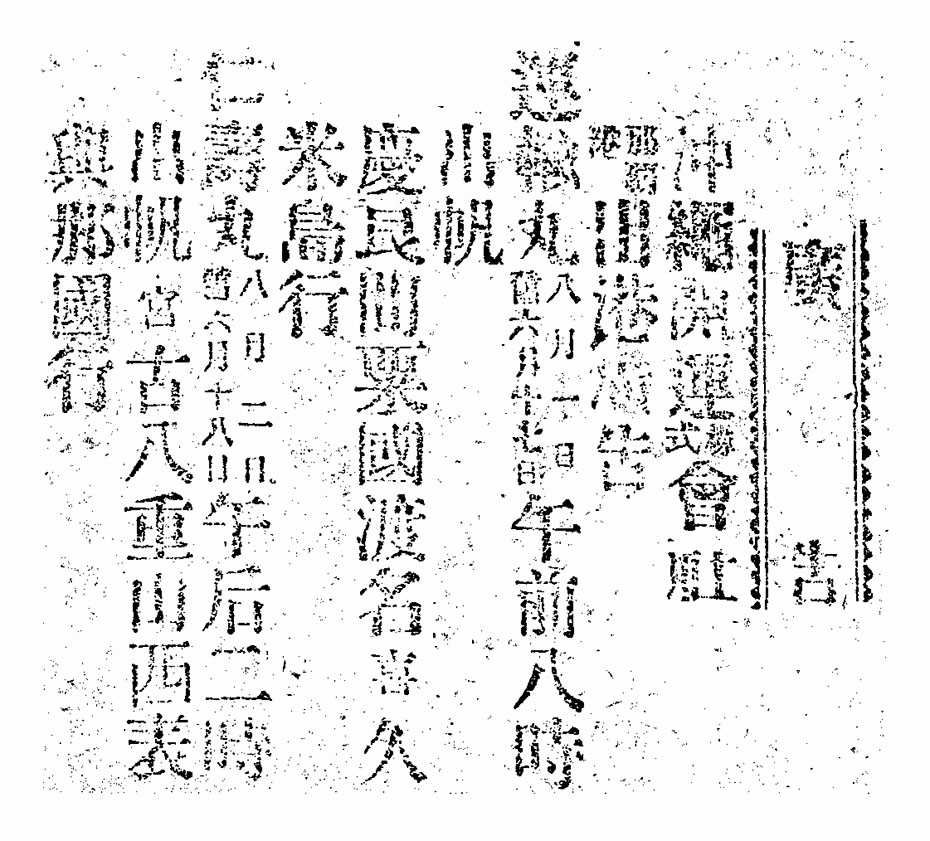 廣告
沖繩開運株式會社
那覇港出港廣告
運輸丸八月一日舊六月十七日午前八時
出帆
慶良間粟國渡名喜久
米島行
仁壽丸八月二日舊六月十八日午后二時
出帆宮古八重山西表
與那國行